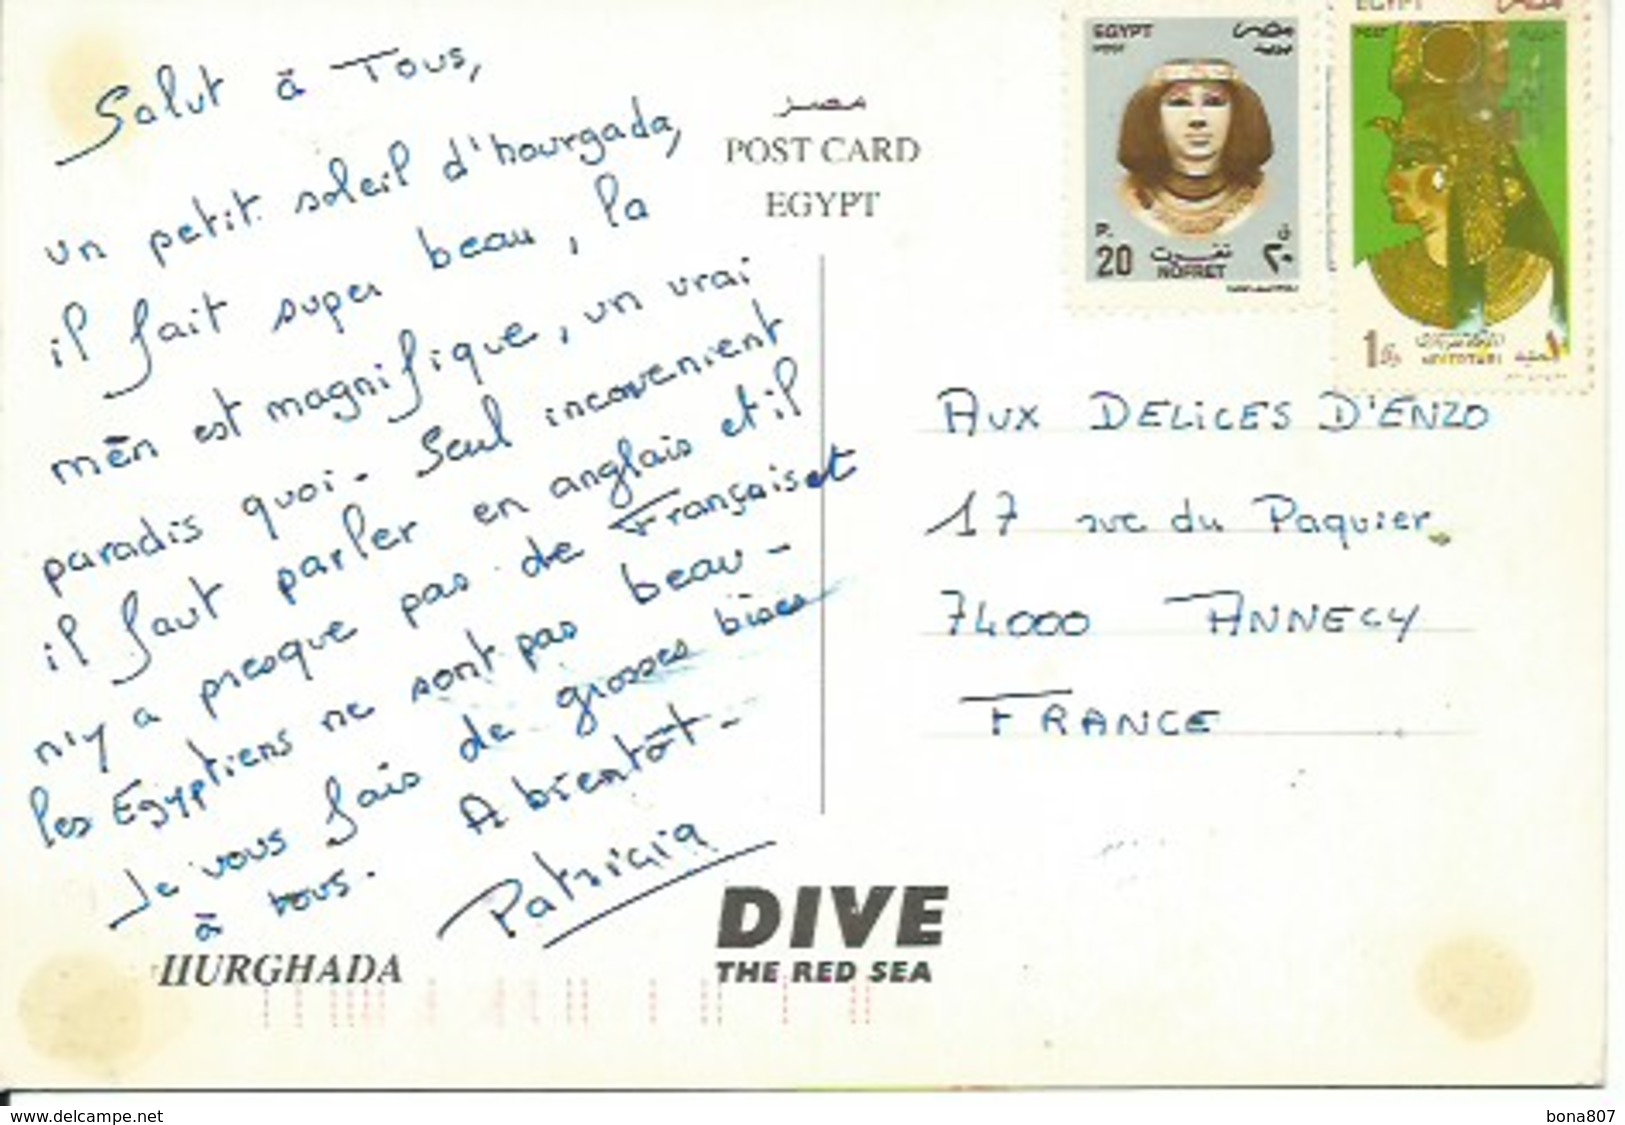 Salut à Tous,
un petit soleil d'hourgada,
il fait super beau, la
mer est magnifique, un vrai
paradis quoi. Seul inconvenient
il faut parler en anglais et il
n'y a presque pas de Français et
les Egyptiens ne sont pas beau -
Je vous fais de grosses bises
à tous. A bientôt -
Patricia
HURGHADA
مصر
POST CARD
EGYPT
DIVE
THE RED SEA
EGYPT مصر
POST بريد
P. 20 نفرت ٢٠ ق
NOFRET
EGYPT مصر
POST
1
AUX DELICES D'ENZO
17 rue du Paquier
74000 ANNECY
FRANCE
www.delcampe.net
bona807